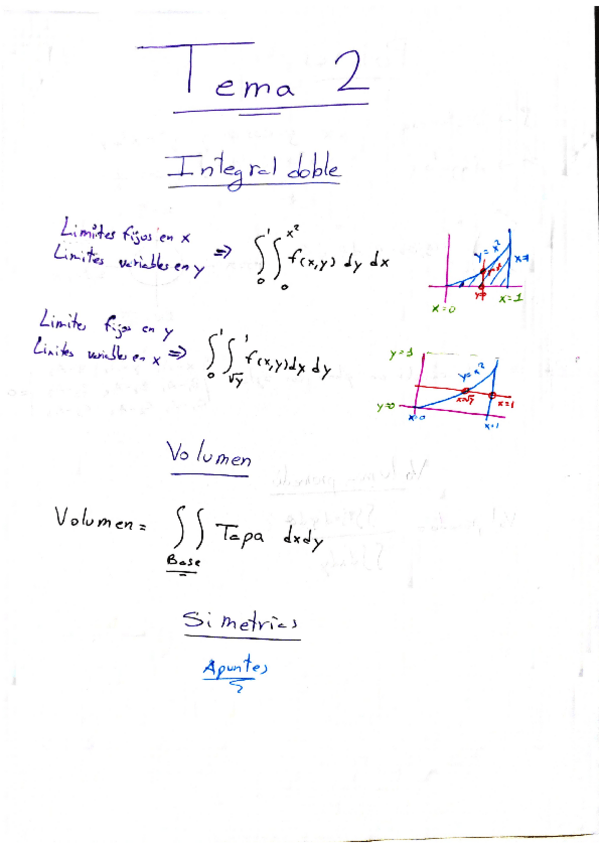 Tema 2
Integral doble
Limites fijos en x
Limites variables en y
⇒ ∫₀¹ ∫₀^{x²} f(x,y) dy dx
y=x²
x=1
y=0
x=0
x=1
Limites fijos en y
Limites variables en x ⇒ ∫₀¹ ∫_{√y}^1 f(x,y)dx dy
y=1
y=x²
x=√y
x=1
y=0
x=0
x=1
Volumen
Volumen = ∬ Tapa dxdy
Base
Simetrias
Apuntes